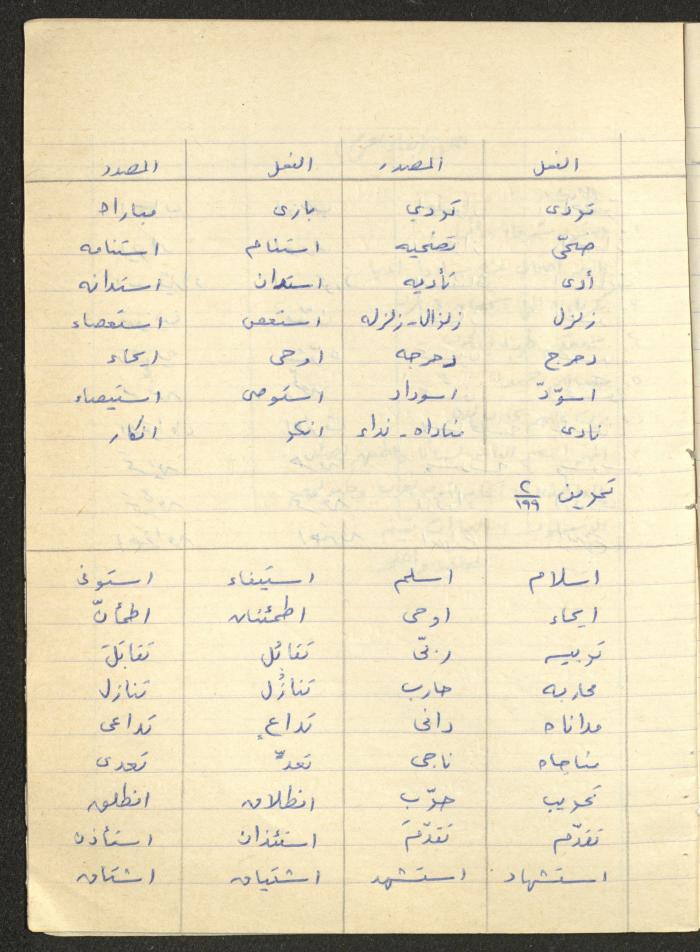 الفعل المصدر الفعل المصدر
تودى تودي بارى مباراه
ضحّى تضحيه استنام استنامه
أدى تأديه استدان استدانه
زلزل زلزالا - زلزله استعصى استعصاء
دحرج دحرجه اوحى ايحاء
اسودّ اسوداد استوصى استيصاء
نادى مناداه - نداء انكر انكار
تمرين ٢/١٩٩
اسلام اسلم استيفاء استوفى
ايحاء اوحى اطمئنان اطمأنّ
تربيه ربّى تقابُل تقابَلَ
محاربه حارب تنازُل تنازل
مداناه دانى تداعٍ تداعى
مناجاه ناجى تعدٍّ تعدى
تجريب جرّب انطلاق انطلق
تقدّم تقدّمَ استئذان استأذن
استشهاد استشهد اشتياق اشتاق